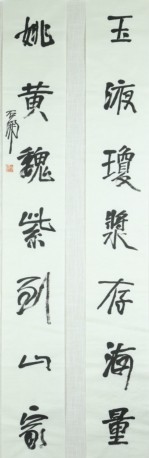 玉液瓊漿存海量
姚黃魏紫到山家